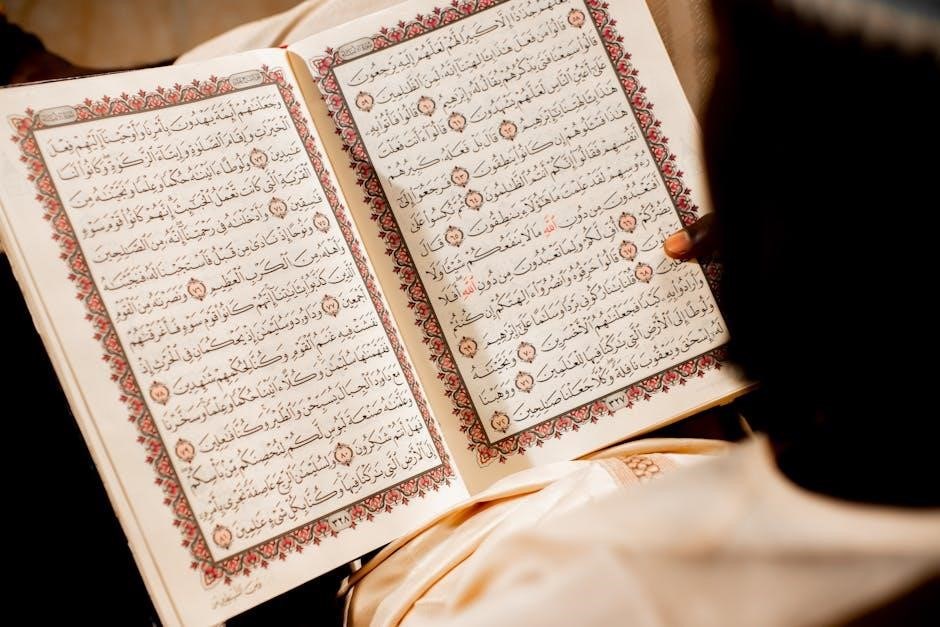 فَجَعَلَهُمْ جُذَٰذًا إِلَّا كَبِيرًا لَّهُمْ لَعَلَّهُمْ إِلَيْهِ يَرْجِعُونَ ٥٨
قَالُوا۟ مَن فَعَلَ هَٰذَا بِـَٔالِهَتِنَآ إِنَّهُۥ لَمِنَ ٱلظَّٰلِمِينَ ٥٩
قَالُوا۟ سَمِعْنَا فَتًى يَذْكُرُهُمْ يُقَالُ لَهُۥٓ إِبْرَٰهِيمُ ٦٠ قَالُوا۟ فَأْتُوا۟ بِهِۦ
عَلَىٰٓ أَعْيُنِ ٱلنَّاسِ لَعَلَّهُمْ يَشْهَدُونَ ٦١ قَالُوٓا۟ ءَأَنتَ فَعَلْتَ
هَٰذَا بِـَٔالِهَتِنَا يَٰٓإِبْرَٰهِيمُ ٦٢ قَالَ بَلْ فَعَلَهُۥ كَبِيرُهُمْ
هَٰذَا فَسْـَٔلُوهُمْ إِن كَانُوا۟ يَنطِقُونَ ٦٣ فَرَجَعُوٓا۟ إِلَىٰٓ
أَنفُسِهِمْ فَقَالُوٓا۟ إِنَّكُمْ أَنتُمُ ٱلظَّٰلِمُونَ ٦٤ ثُمَّ نُكِسُوا۟ عَلَىٰ
رُءُوسِهِمْ لَقَدْ عَلِمْتَ مَا هَٰٓؤُلَآءِ يَنطِقُونَ ٦٥ قَالَ
أَفَتَعْبُدُونَ مِن دُونِ ٱللَّهِ مَا لَا يَنفَعُكُمْ شَيْـًٔا وَلَا
يَضُرُّكُمْ ٦٦ أُفٍّ لَّكُمْ وَلِمَا تَعْبُدُونَ مِن دُونِ ٱللَّهِ أَفَلَا
٦٧ قَالُوا۟ حَرِّقُوهُ وَٱنصُرُوٓا۟ ءَالِهَتَكُمْ إِن كُنتُمْ
٦٨ قُلْنَا يَٰنَارُ كُونِى بَرْدًا وَسَلَٰمًا عَلَىٰٓ إِبْرَٰهِيمَ ٦٩
وَأَرَادُوا۟ بِهِۦ كَيْدًا فَجَعَلْنَٰهُمُ ٱلْأَخْسَرِينَ ٧٠ وَنَجَّيْنَٰهُ
وَلُوطًا إِلَى ٱلْأَرْضِ ٱلَّتِى بَٰرَكْنَا فِيهَا لِلْعَٰلَمِينَ ٧١ وَوَهَبْنَا
لَهُۥٓ إِسْحَٰقَ وَيَعْقُوبَ نَافِلَةً وَكُلًّا جَعَلْنَا صَٰلِحِينَ ٧٢
٣٢٧
وَجَعَلْنَٰهُمْ أَئِمَّةً يَهْدُونَ بِأَمْرِنَا وَأَوْحَيْنَآ إِلَيْهِمْ فِعْلَ
ٱلْخَيْرَٰتِ وَإِقَامَ ٱلصَّلَوٰةِ وَإِيتَآءَ ٱلزَّكَوٰةِ وَكَانُوا۟ لَنَا
عَٰبِدِينَ ٧٣ وَلُوطًا ءَاتَيْنَٰهُ حُكْمًا وَعِلْمًا وَنَجَّيْنَٰهُ مِنَ
ٱلْقَرْيَةِ ٱلَّتِى كَانَت تَّعْمَلُ ٱلْخَبَٰٓئِثَ إِنَّهُمْ كَانُوا۟ قَوْمَ سَوْءٍ
فَٰسِقِينَ ٧٤ وَأَدْخَلْنَٰهُ فِى رَحْمَتِنَآ إِنَّهُۥ مِنَ ٱلصَّٰلِحِينَ
٧٥ وَنُوحًا إِذْ نَادَىٰ مِن قَبْلُ فَٱسْتَجَبْنَا لَهُۥ فَنَجَّيْنَٰهُ
وَأَهْلَهُۥ مِنَ ٱلْكَرْبِ ٱلْعَظِيمِ ٧٦ وَنَصَرْنَٰهُ مِنَ ٱلْقَوْمِ
ٱلَّذِينَ كَذَّبُوا۟ بِـَٔايَٰتِنَآ إِنَّهُمْ كَانُوا۟ قَوْمَ سَوْءٍ فَأَغْرَقْنَٰهُمْ
أَجْمَعِينَ ٧٧ وَدَاوُۥدَ وَسُلَيْمَٰنَ إِذْ يَحْكُمَانِ فِى ٱلْحَرْثِ إِذْ
نَفَشَتْ فِيهِ غَنَمُ ٱلْقَوْمِ وَكُنَّا لِحُكْمِهِمْ شَٰهِدِينَ ٧٨
فَفَهَّمْنَٰهَا سُلَيْمَٰنَ وَكُلًّا ءَاتَيْنَا حُكْمًا وَعِلْمًا وَسَخَّرْنَا
مَعَ دَاوُۥدَ ٱلْجِبَالَ يُسَبِّحْنَ وَٱلطَّيْرَ وَكُنَّا فَٰعِلِينَ ٧٩
وَعَلَّمْنَٰهُ صَنْعَةَ لَبُوسٍ لَّكُمْ لِتُحْصِنَكُم مِّنۢ بَأْسِكُمْ
فَهَلْ أَنتُمْ شَٰكِرُونَ ٨٠ وَلِسُلَيْمَٰنَ ٱلرِّيحَ عَاصِفَةً تَجْرِى بِأَمْرِهِۦٓ
إِلَى ٱلْأَرْضِ ٱلَّتِى بَٰرَكْنَا فِيهَا وَكُنَّا بِكُلِّ شَىْءٍ عَٰلِمِينَ ٨١
٣٢٨